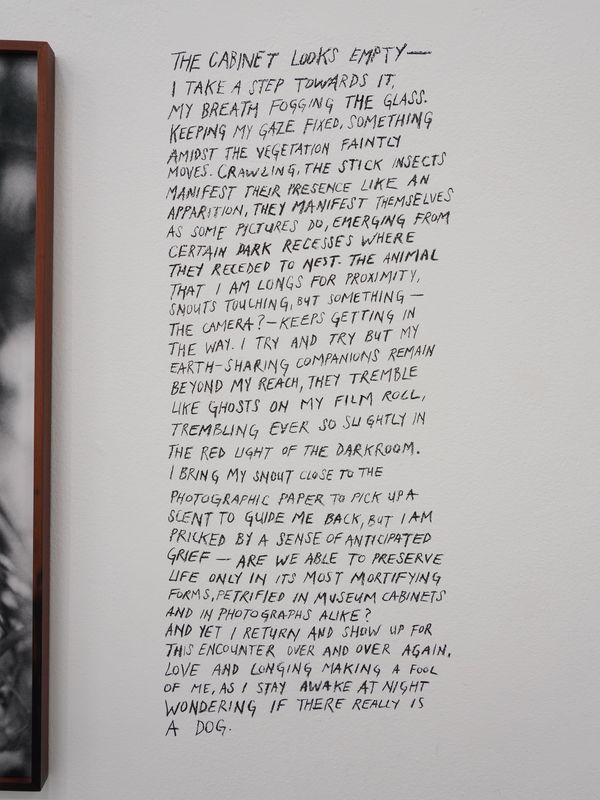 THE CABINET LOOKS EMPTY—
I TAKE A STEP TOWARDS IT,
MY BREATH FOGGING THE GLASS.
KEEPING MY GAZE FIXED, SOMETHING
AMIDST THE VEGETATION FAINTLY
MOVES. CRAWLING, THE STICK INSECTS
MANIFEST THEIR PRESENCE LIKE AN
APPARITION, THEY MANIFEST THEMSELVES
AS SOME PICTURES DO, EMERGING FROM
CERTAIN DARK RECESSES WHERE
THEY RECEDED TO NEST. THE ANIMAL
THAT I AM LONGS FOR PROXIMITY,
SNOUTS TOUCHING, BUT SOMETHING —
THE CAMERA? — KEEPS GETTING IN
THE WAY. I TRY AND TRY BUT MY
EARTH-SHARING COMPANIONS REMAIN
BEYOND MY REACH, THEY TREMBLE
LIKE GHOSTS ON MY FILM ROLL,
TREMBLING EVER SO SLIGHTLY IN
THE RED LIGHT OF THE DARKROOM.
I BRING MY SNOUT CLOSE TO THE
PHOTOGRAPHIC PAPER TO PICK UP A
SCENT TO GUIDE ME BACK, BUT I AM
PRICKED BY A SENSE OF ANTICIPATED
GRIEF — ARE WE ABLE TO PRESERVE
LIFE ONLY IN ITS MOST MORTIFYING
FORMS, PETRIFIED IN MUSEUM CABINETS
AND IN PHOTOGRAPHS ALIKE?
AND YET I RETURN AND SHOW UP FOR
THIS ENCOUNTER OVER AND OVER AGAIN,
LOVE AND LONGING MAKING A FOOL
OF ME, AS I STAY AWAKE AT NIGHT
WONDERING IF THERE REALLY IS
A DOG.